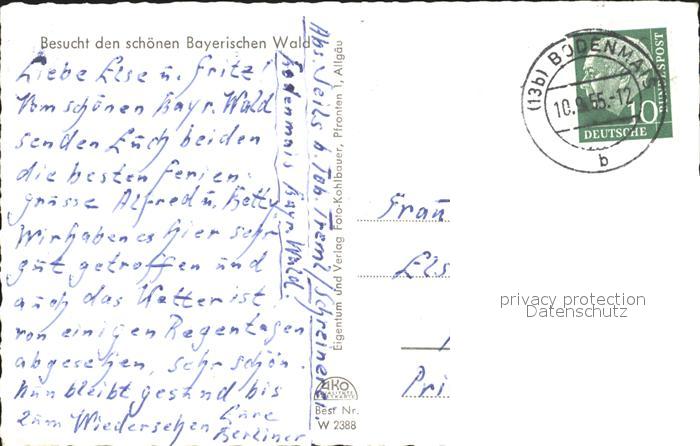 Besucht den schönen Bayerischen Wald
Liebe Else u. Fritz!
Vom schönen Bayr. Wald
senden Euch beiden
die besten Ferien-
grüsse Alfred u. Betty
Wir haben es hier sehr
gut getroffen und
auch das Wetter ist
von einigen Regentagen
abgesehen, sehr schön.
Nun bleibt gesund bis
zum Wiedersehen Eure
Berliner
Abs. Seils b. Joh. Treml / Schreinerei.
Bodenmais Bayr. Wald.
Eigentum und Verlag Foto-Kohlbauer, Pfronten 1, Allgäu
AKO
Best Nr.
W 2388
(13b) BODENMAIS
10.9.55.-12
b
10
DEUTSCHE
BUNDESPOST
Frau
Els
Pri
privacy protection
Datenschutz